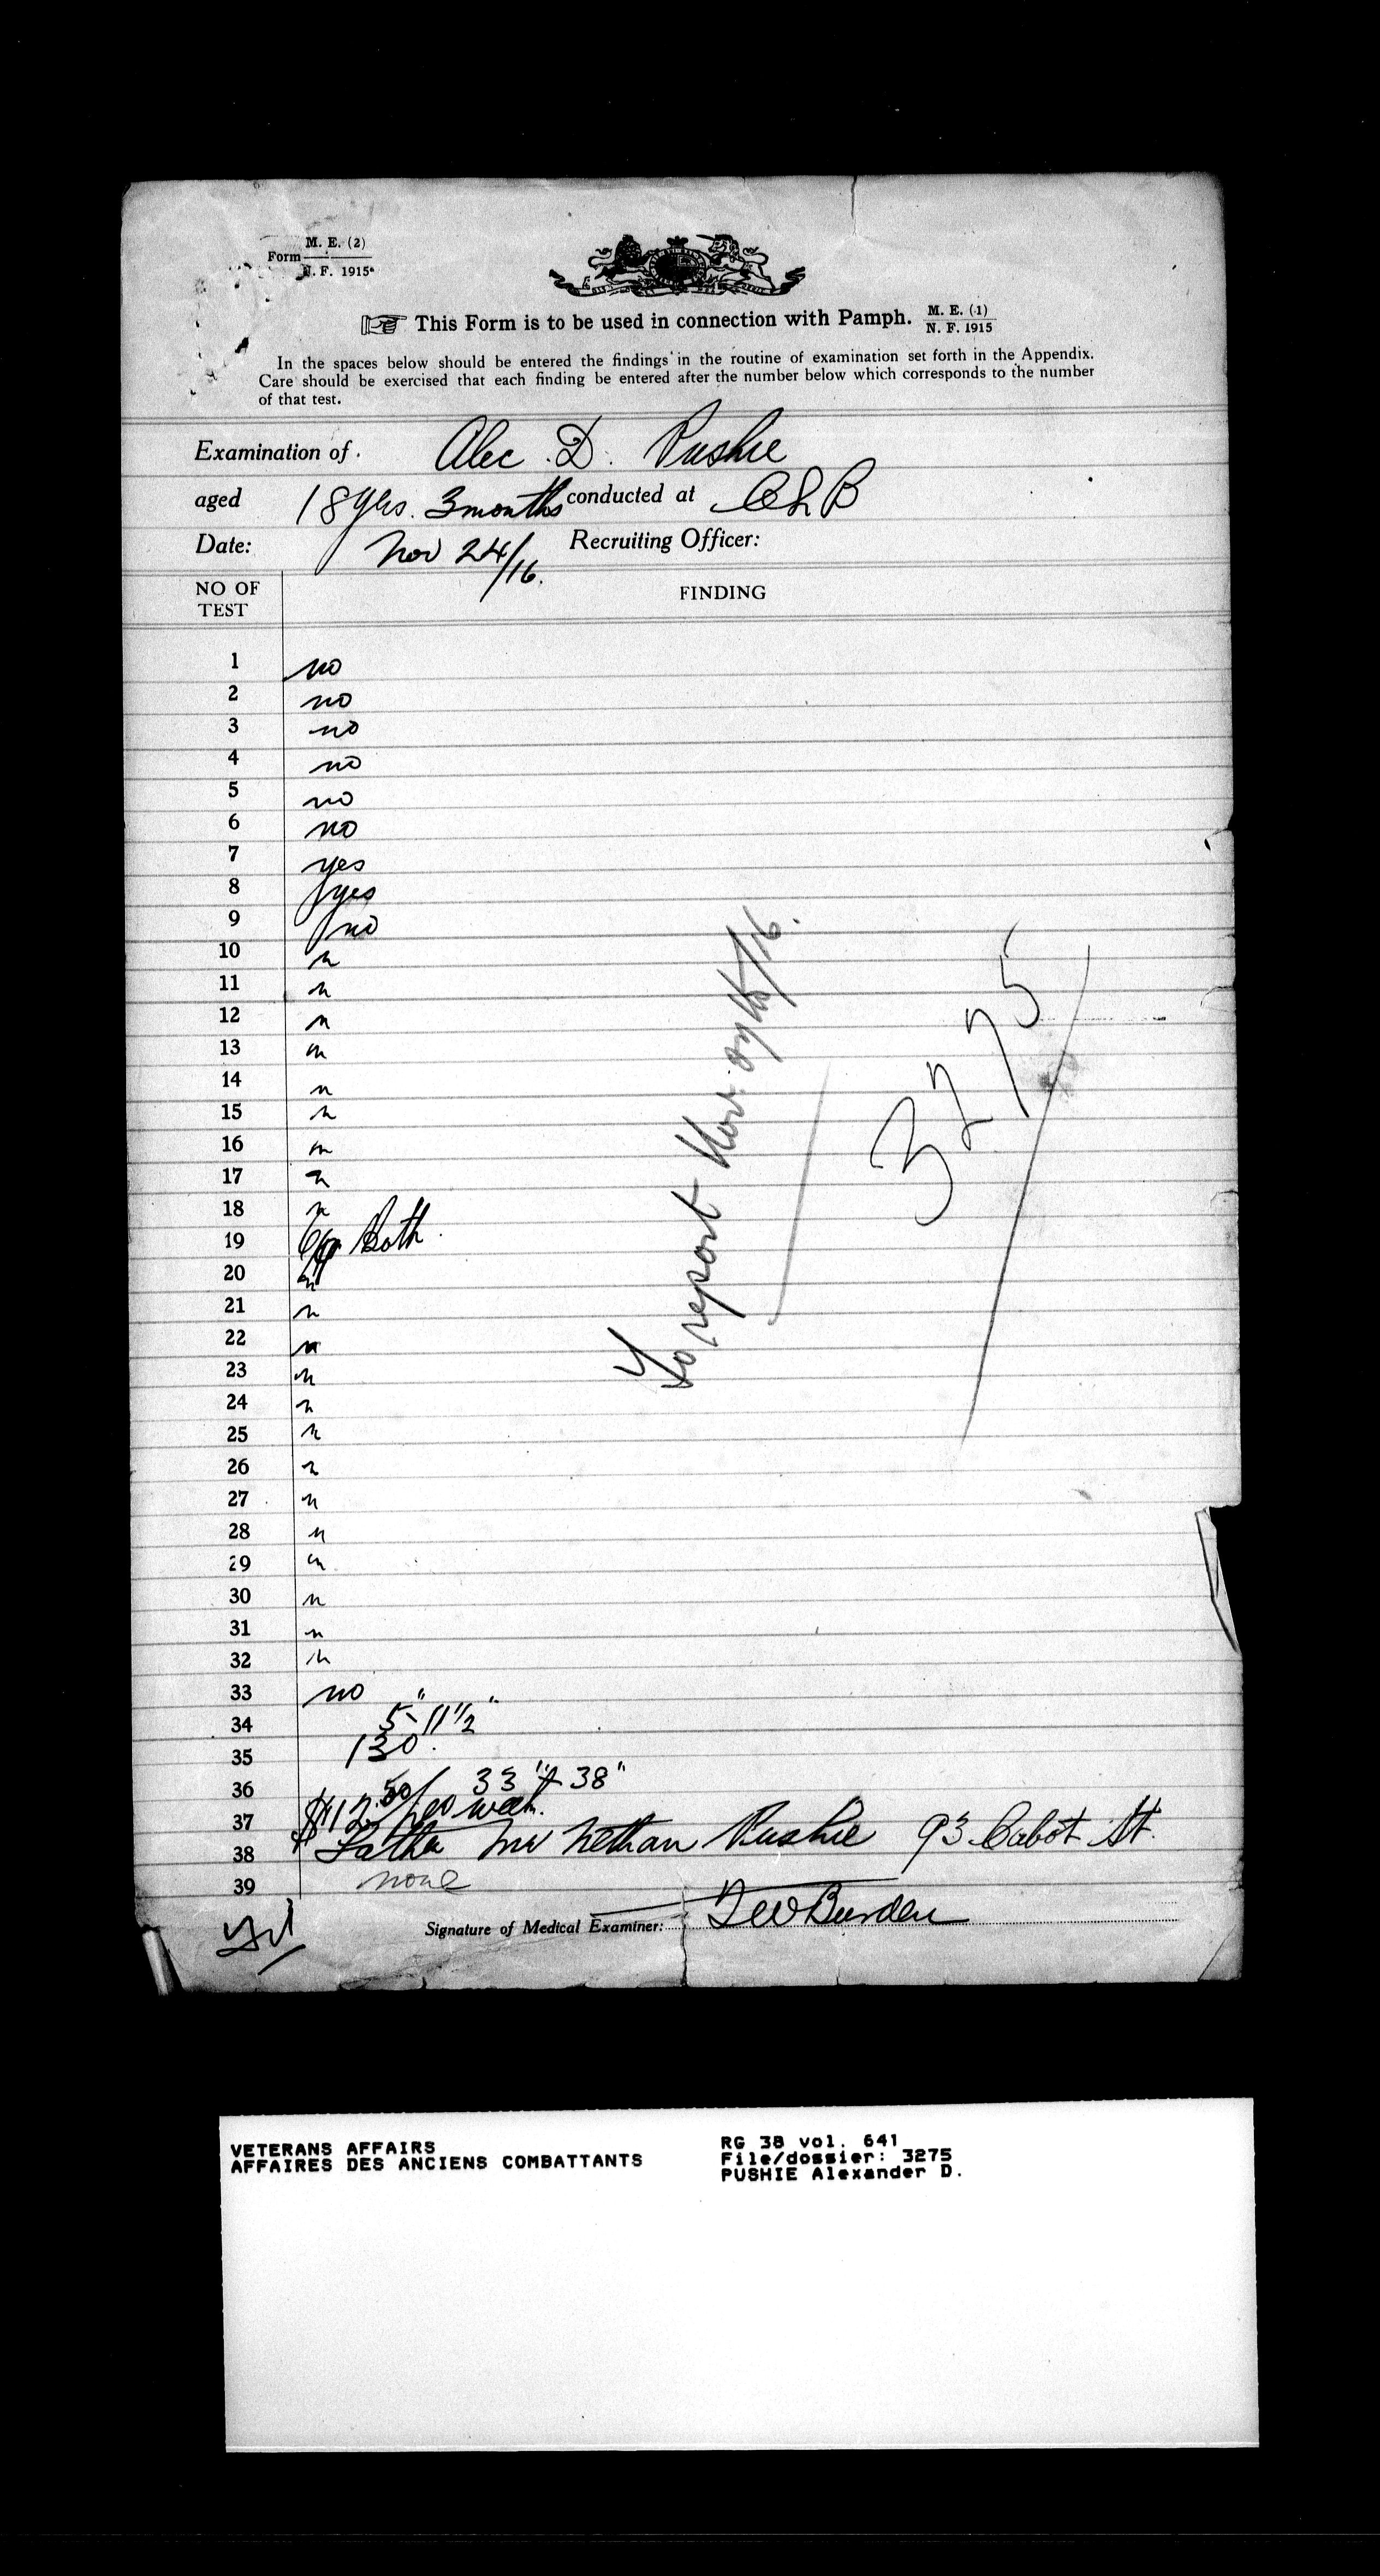 M. E. (2)
Form
N. F. 1915
This Form is to be used in connection with Pamph. M. E. (1)
N. F. 1915
In the spaces below should be entered the findings in the routine of examination set forth in the Appendix.
Care should be exercised that each finding be entered after the number below which corresponds to the number
of that test.
Examination of Alec D. Pushie
aged 18 yrs. 3 months conducted at CLB
Date: Nov 24/16. Recruiting Officer:
NO OF
TEST
FINDING
1 no
2 no
3 no
4 no
5 no
6 no
7 yes
8 yes
9 no
10 n
11 n
12 n
13 n
14 n
15 n
16 n
17 n
18 n
19 6/9 Both
20 n
21 n
22 n
23 n
24 n
25 n
26 n
27 n
28 n
29 n
30 n
31 n
32 n
33 no
34 5" 11 1/2"
35 130
36 33" + 38"
37 $12.50/00 week.
38 Father Mr Nethan Pushie 93 Cabot St.
39 none
To report Nov. 27th/16.
3275
Signature of Medical Examiner: Burden
VETERANS AFFAIRS
AFFAIRES DES ANCIENS COMBATTANTS
RG 38 vol. 641
File/dossier: 3275
PUSHIE Alexander D.